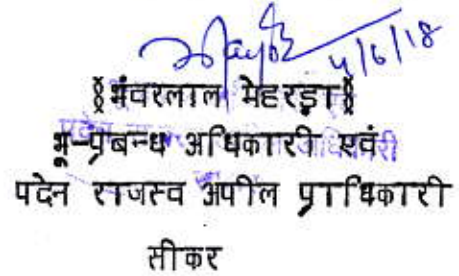 4/6/18
§भंवरलाल मेहरड़ा§
भू-प्रबन्ध अधिकारी एवं
पदेन राजस्व अपील प्राधिकारी
सीकर